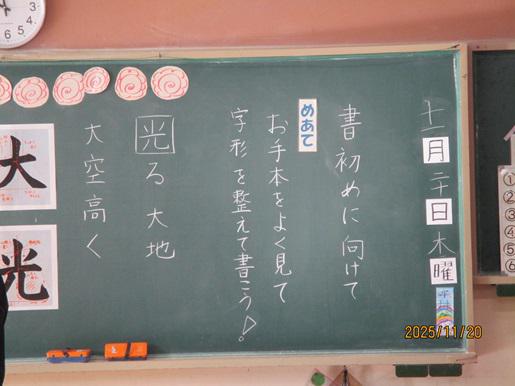 十一月二十日木曜
書初めに向けて
めあて
お手本をよく見て
字形を整えて書こう!
光る大地
大空高く
大
光
①
②
③
④
⑤
⑥
2025/11/20